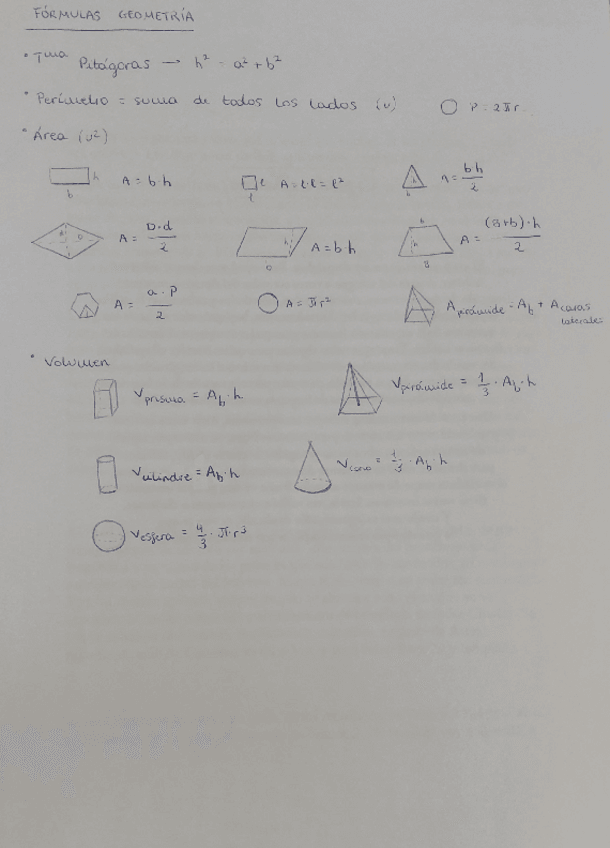 FÓRMULAS GEOMETRÍA
• Tma Pitágoras → h² = a² + b²
• Perímetro = suma de todos los lados (u) P = 2πr
• Área (u²)
h b A = b·h l l A = l·l = l² h b A = b·h/2
d D A = D·d/2 h b A = b·h b h B A = (B+b)·h/2
a A = a·P/2 A = πr² Apirámide = Ab + Acaras laterales
• Volumen
Vprisma = Ab·h Vpirámide = 1/3 · Ab · h
Vcilindre = Ab·h Vcono = 1/3 · Ab · h
Vesfera = 4/3 · π·r³